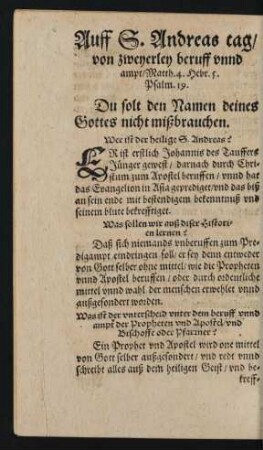 Auff S. Andreas tag/
von zweyerley beruff vnnd
ampt/Matth.4. Hebr. 5.
Psalm. 19.
Du solt den Namen deines
Gottes nicht mißbrauchen.
Wer ist der heilige S. Andreas?
ER ist erstlich Johannis des Tauffers
Jünger gewest/ darnach durch Chri-
stum zum Apostel beruffen/ vnnd hat
das Evangelion in Asia geprediget/vnd das biß
an sein ende mit bestendigem bekenntnuß vnd
seinem blute bekrefftiget.
Was sollen wir auß diser Histori-
en lernen?
Daß sich niemands vnberuffen zum Pre-
digampt eindringen soll/ er sey denn entweder
von Gott selber ohne mittel/ wie die Propheten
vnnd Apostel beruffen/ oder durch ordentliche
mittel vnnd wahl der menschen erwehlet vnnd
außgesondert worden.
Was ist der vnterscheid vnter dem beruff vnnd
ampt der Propheten vnd Apostel/ vnd
Bischoffe oder Pfarrner?
Ein Prophet vnd Apostel wird one mittel
von Gott selber außgesondert/ vnd redt vnnd
schreibt alles auß dem heiligen Geist/ vnd be-
kreff-